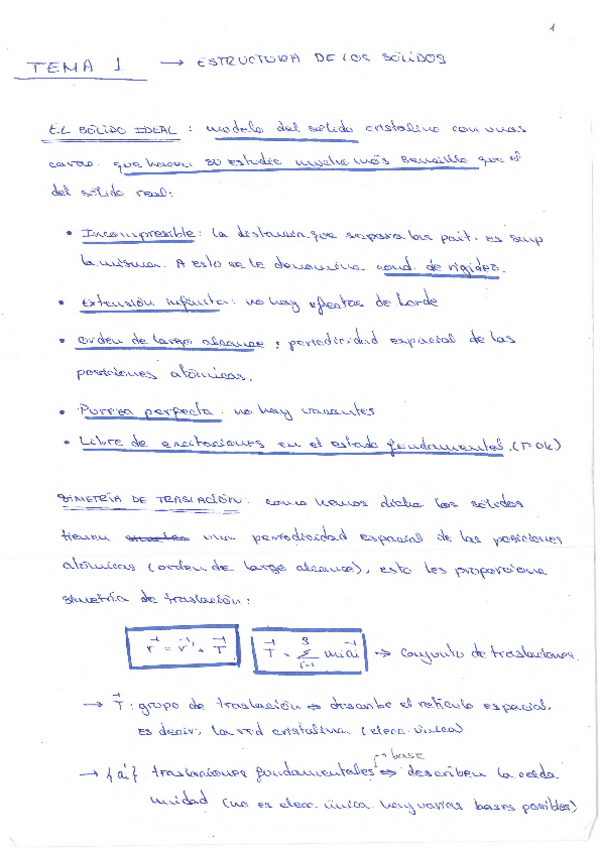 1
TEMA 1 → ESTRUCTURA DE LOS SÓLIDOS
EL SÓLIDO IDEAL : modelo del sólido cristalino con unas
caract. que hacen su estudio mucho más sencillo que el
del sólido real:
• Incompresible: la distancia que separa las part. es siemp
la misma. A esto se le denomina cond. de rigidez.
• Extensión infinita: no hay efectos de borde
• Orden de largo alcance : periodicidad espacial de las
posiciones atómicas.
• Pureza perfecta: no hay vacantes
• Libre de excitaciones en el estado fundamental. (T=0K)
SIMETRÍA DE TRASLACIÓN: como hemos dicho los sólidos
tienen una periodicidad espacial de las posiciones
atómicas (orden de largo alcance), esto les proporciona
simetría de traslación:
r⃗ = r⃗' + T⃗ T⃗ = ∑ᵢ₌₁³ mi a⃗i → conjunto de traslaciones.
→ T⃗: grupo de traslación ⇒ describe el retículo espacial,
es decir, la red cristalina. (elecc. única)
→ base
→ {a⃗i} traslaciones fundamentales ⇒ describen la celda
unidad (no es elecc. única. hay varias bases posibles)